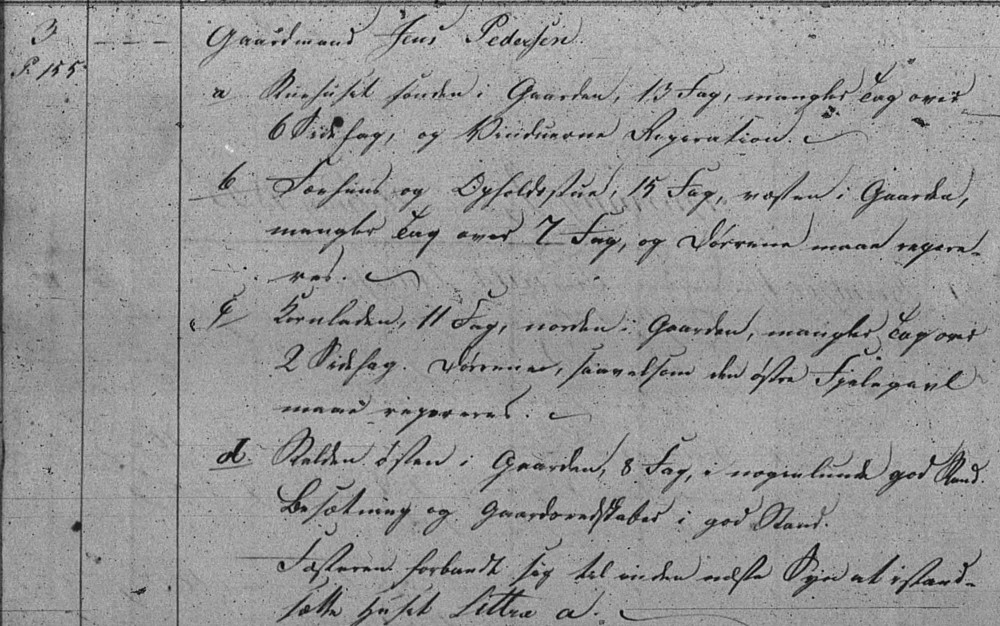 3 Gaardmand Jens Pedersen.
P. 155
a Stuehuset sønden i Gaarden, 13 Fag, mangler Tag over
6 Sidefag, og Vinduerne Reperation.
b Fæehuus og Opholdsstue, 15 Fag, vesten i Gaarden,
mangler Tag over 7 Fag, og Dørrene maae repere-
res.
c Kornladen, 11 Fag, norden i Gaarden, mangler Tag over
2 Sidefag. Dørrene, saavelsom den østre Fjelegavl
maae repereres.
d Stalden østen i Gaarden, 8 Fag, i nogenlunde god Stand.
Besætning og Gaardsredskaber i god Stand.
Fæsteren forbandt sig til inden næste Syn at istand-
sætte Huset Littra a.